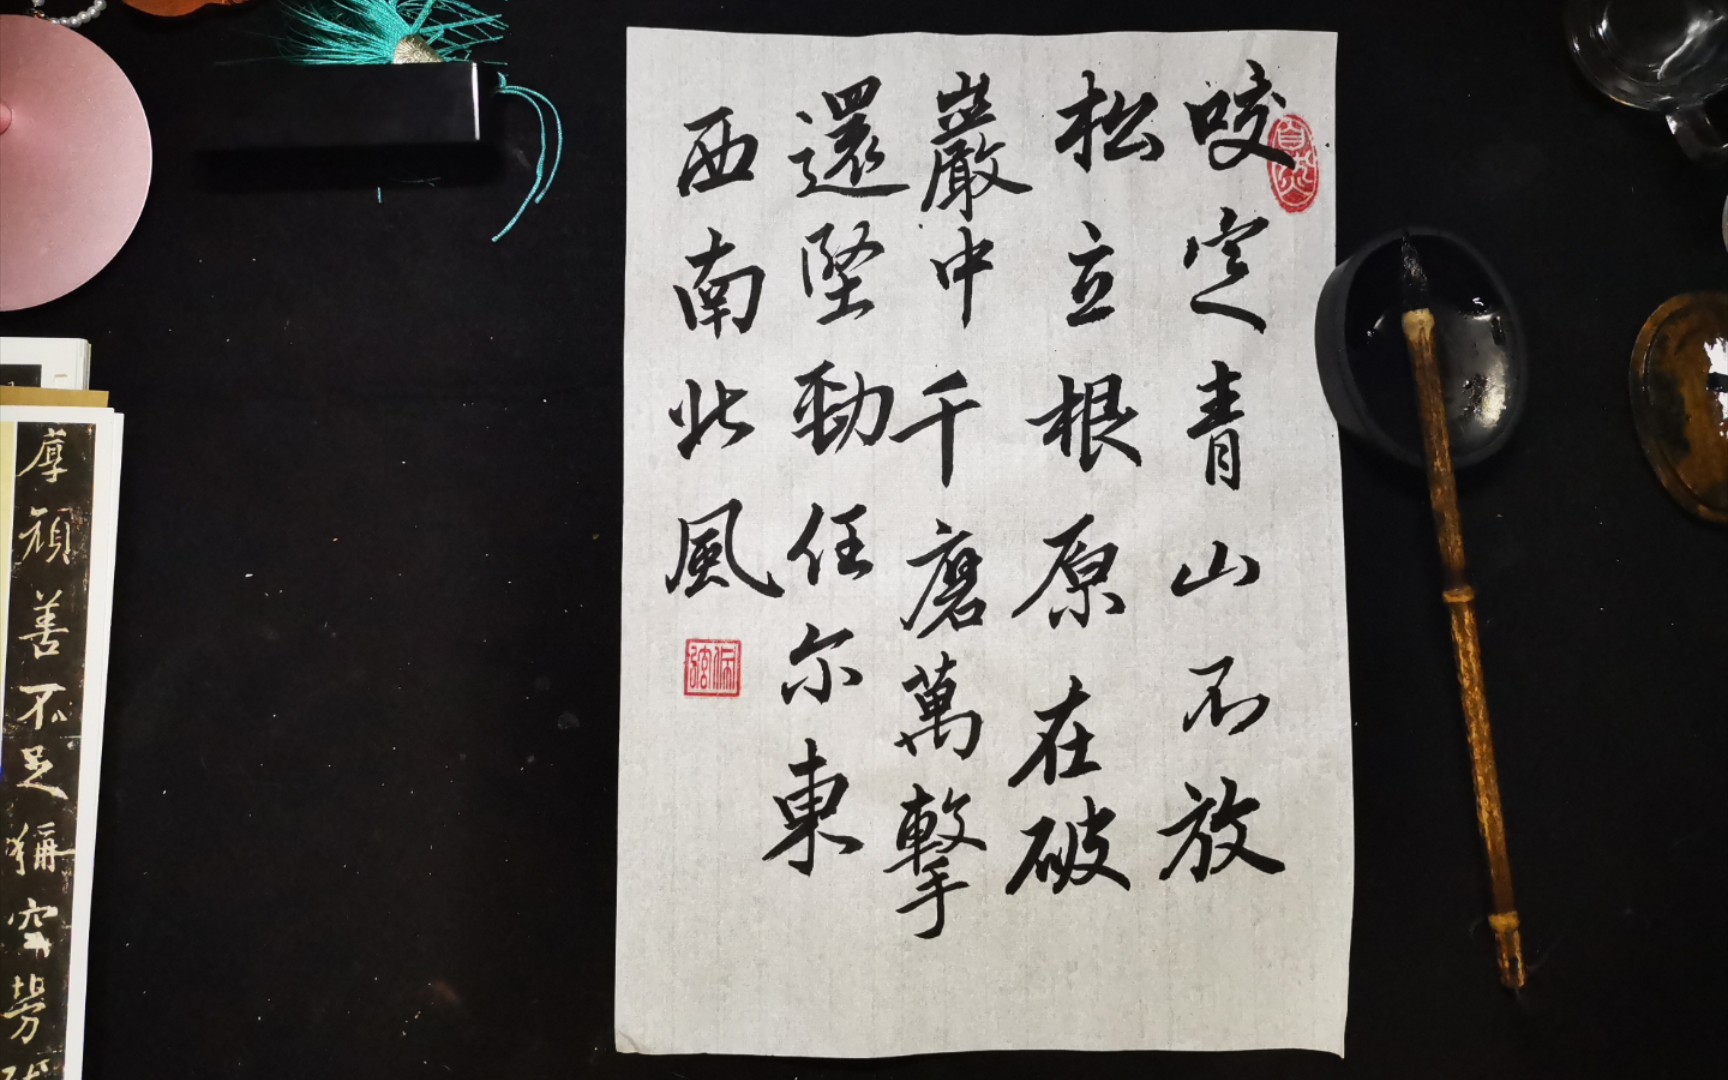 咬定青山不放
松立根原在破
巖中千磨萬擊
還堅勁任尔東
西南北風
自然
善不足